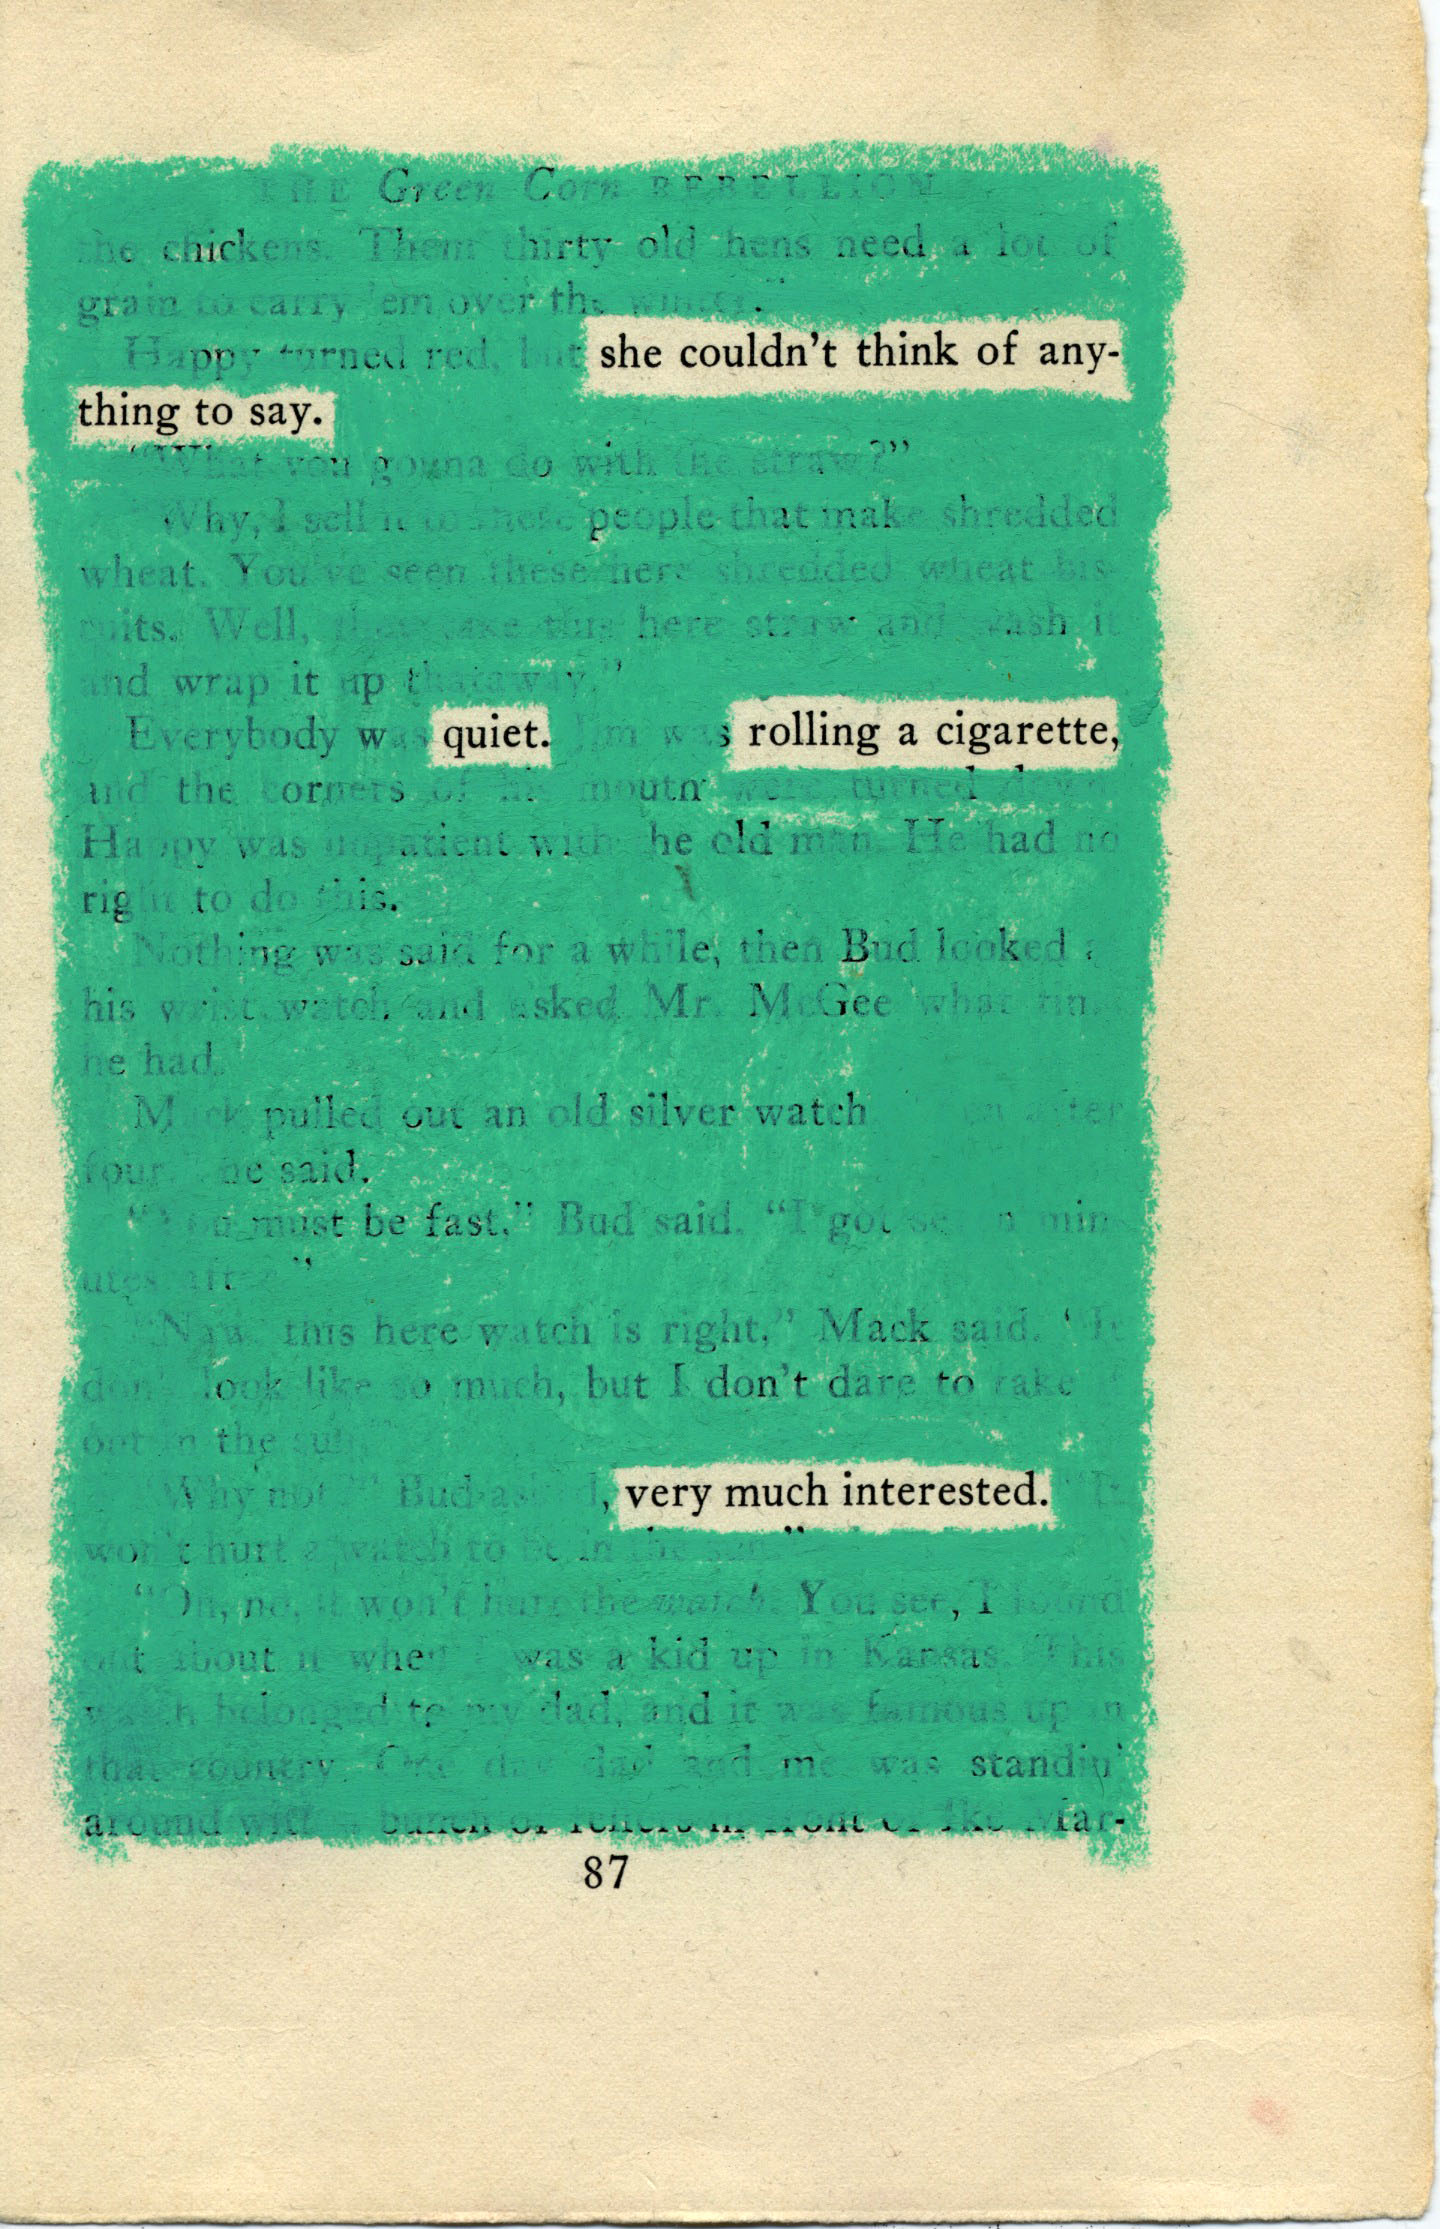 THE Green Corn REBELLION
the chickens. Them thirty old hens need a lot of
grain to carry 'em over the winter."
Happy turned red, but she couldn't think of any-
thing to say.
"What you gonna do with the straw?"
"Why, I sell it to these people that make shredded
wheat. You've seen these here shredded wheat bis-
cuits. Well, they take this here straw and wash it
and wrap it up thataway."
Everybody was quiet. Jim was rolling a cigarette,
and the corners of his mouth were turned down.
Happy was impatient with the old man. He had no
right to do this.
Nothing was said for a while, then Bud looked at
his wrist watch and asked Mr. McGee what time
he had.
Mack pulled out an old silver watch after
four," he said.
"You must be fast," Bud said. "I got seven min-
utes after."
"Naw, this here watch is right," Mack said. "It
don't look like so much, but I don't dare to take it
out in the sun."
"Why not?" Bud asked, very much interested. "It
won't hurt a watch to be in the sun."
"Oh, no, it won't hurt the watch. You see, I found
out about it when I was a kid up in Kansas. This
watch belonged to my dad, and it was famous up in
that country. One day dad and me was standin'
around with a bunch of fellers in front of the Mar-
87